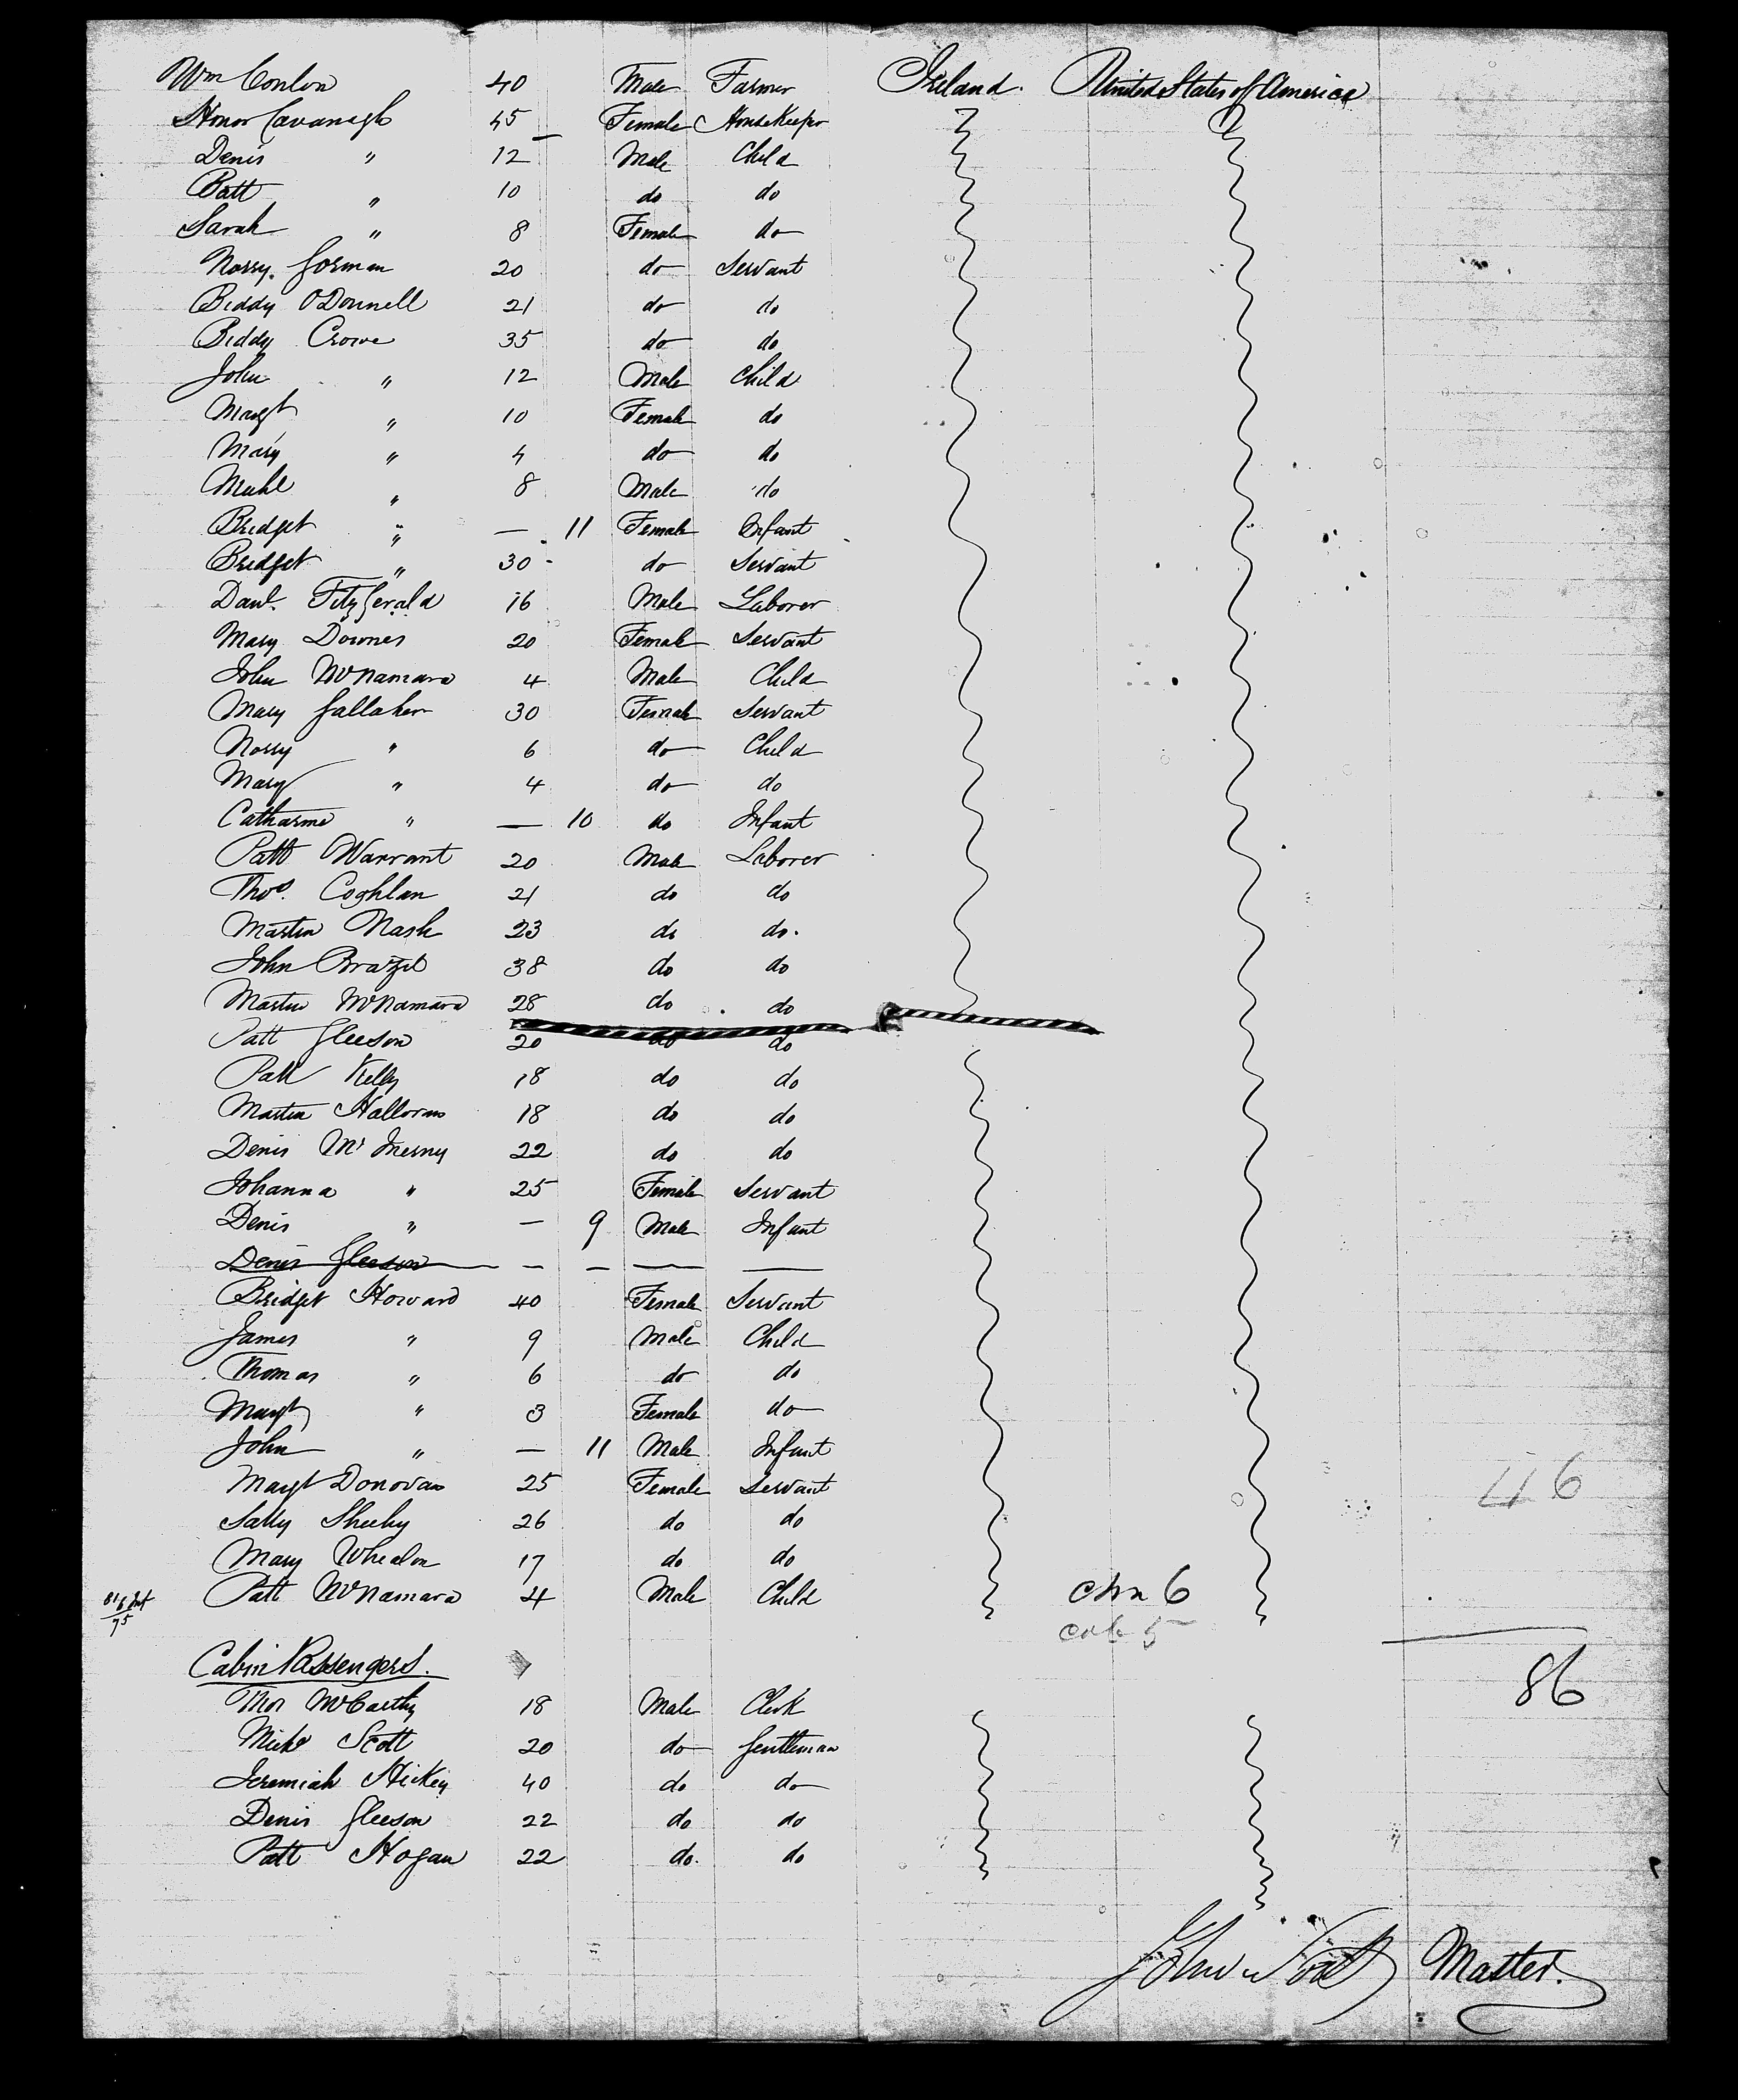 Wm Conlon 40 Male Farmer Ireland. United States of America
Honor Cavanagh 45 Female HouseKeeper
Denis " 12 Male Child
Patt " 10 do do
Sarah " 8 Female do
Norry Gorman 20 do Servant
Biddy O'Donnell 21 do do
Biddy Crowe 35 do do
John " 12 Male Child
Margt " 10 Female do
Mary " 4 do do
Michl " 8 Male do
Bridget " — 11 Female Infant
Bridget " 30 do Servant
Danl. FitzGerald 16 Male Laborer
Mary Downes 20 Female Servant
John McNamara 4 Male Child
Mary Gallaher 30 Female Servant
Norry " 6 do Child
Mary " 4 do do
Catharine " — 10 do Infant
Patt Warrant 20 Male Laborer
Thos. Coghlan 21 do do
Martin Nash 23 do do.
John Brazil 38 do do
Martin McNamara 28 do do
Patt Gleeson 20 do do
Patt Kelly 18 do do
Martin Halloran 18 do do
Denis Mc Inerny 22 do do
Johanna " 25 Female Servant
Denis " — 9 Male Infant
Denis Gleeson — — — —
Bridget Howard 40 Female Servant
James " 9 Male Child
Thomas " 6 do do
Margt " 3 Female do
John " — 11 Male Infant
Margt Donovan 25 Female Servant
46
Sally Sheehy 26 do do
Mary Whealon 17 do do
Patt McNamara 4 Male Child chn 6
cab 5
Cabin Passengers.
86
Thos McCarthy 18 Male Clerk
Michl Scott 20 do Gentleman
Jeremiah Hickey 40 do do
Denis Gleeson 22 do do
Patt Hogan 22 do. do
John Master.